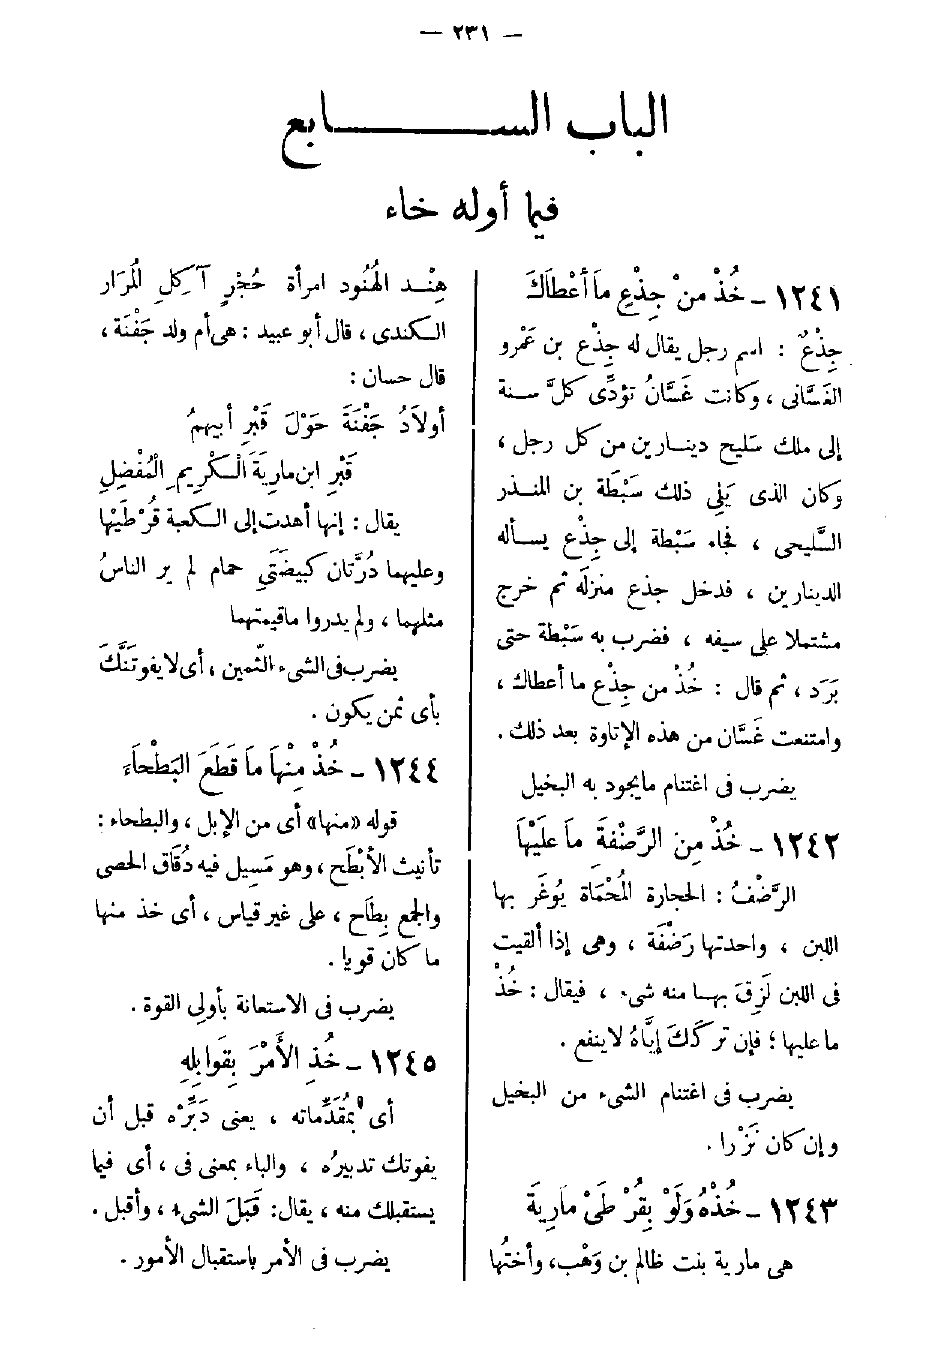 — ٢٣١ —
الباب الســـــــابع
فيما أوله خاء
١٢٤١ – خُذْ مِنْ جِذْعٍ مَا أعْطَاكَ
جِذْعٌ : اسم رجل يقال له جِذْع بن عَمْرو
الغَسَّانى ، وَكانت غَسَّانُ تؤدِّى كلَّ سـنة
إلى ملك سَليح دينـارين من كل رجل ،
وكان الذى يَلِي ذلك سَبْطَة بن المنـذر
السَّليحى ، فجاء سَبْطة إلى جِذْع يسـأله
الدينارين ، فدخل جذع منزلَه ثم خرج
مشتملا على سيفه ، فضرب به سَبْطة حتى
بَرَد ، ثم قال : خُذْ من جِذْع ما أعطاك ،
وامتنعت غَسَّان من هذه الإتاوة بعد ذلك .
يضرب فى اغتنام مايجود به البخيل
١٢٤٢ – خُذْ مِن الرَّضْفَةِ مَا عَلَيْهَا
الرَّضْفُ : الحجارة المُحْمَاة يُوغَر بها
اللبن ، واحدتها رَضْفَة ، وهى إذا ألقيت
فى اللبن لَزِقَ بهـا منه شىء ، فيقال : خُذْ
ما عليها ؛ فإن تركَكَ إيَّاهُ لاينفع .
يضرب فى اغتنام الشىء من البخيل
وإن كان نَزْرا .
١٢٤٣ – خُذْهُ وَلَوْ بِقُرْطَىْ مَارِيَةَ
هى مارية بنت ظالم بن وَهْب، وأختُها
هِنْـد الهُنُود امرأة حُجْرٍ آكِلِ المُرَار
الكندى ، قال أبو عبيد : هى أم ولد جَفْنَة ،
قال حسان :
أولاَدُ جَفْنَةَ حَوْلَ قَبْرِ أبيهمُ
قَبْرِ ابن مارِيَةَ الْـكَرِيمِ الْمُفْضِلِ
يقال : إنها أهدت إلى الكعبة قُرْطَيْها
وعليهما دُرَّتان كبيضَتَيِ حمام لم ير الناسُ
مثلهما ، ولم يدروا ماقيمتهما
يضرب فى الشىء الثَّمين ، أى لا يفوتَنَّكَ
بأى ثمن يكون .
١٢٤٤ – خُذْ مِنْهَا مَا قَطَعَ البَطْحَاءَ
قوله «منها» أى من الإبل ، والبطحاء :
تأنيث الأبْطَح ، وهو مَسِيل فيه دُقَاق الحصى
والجمع بِطَاح ، على غير قياس ، أى خذ منها
ما كان قويا .
يضرب فى الاستعانة بأولى القوة .
١٢٤٥ – خُذِ الأَمْرَ بِقَوَابِلِهِ
أى بمُقَدِّماته ، يعنى دَبِّرْه قبل أن
يفوتك تدبيرُه ، والباء بمعنى فى ، أى فيما
يستقبلك منه ، يقال: قَبَلَ الشىء ، وأقبل .
يضرب فى الأمر باستقبال الأمور .